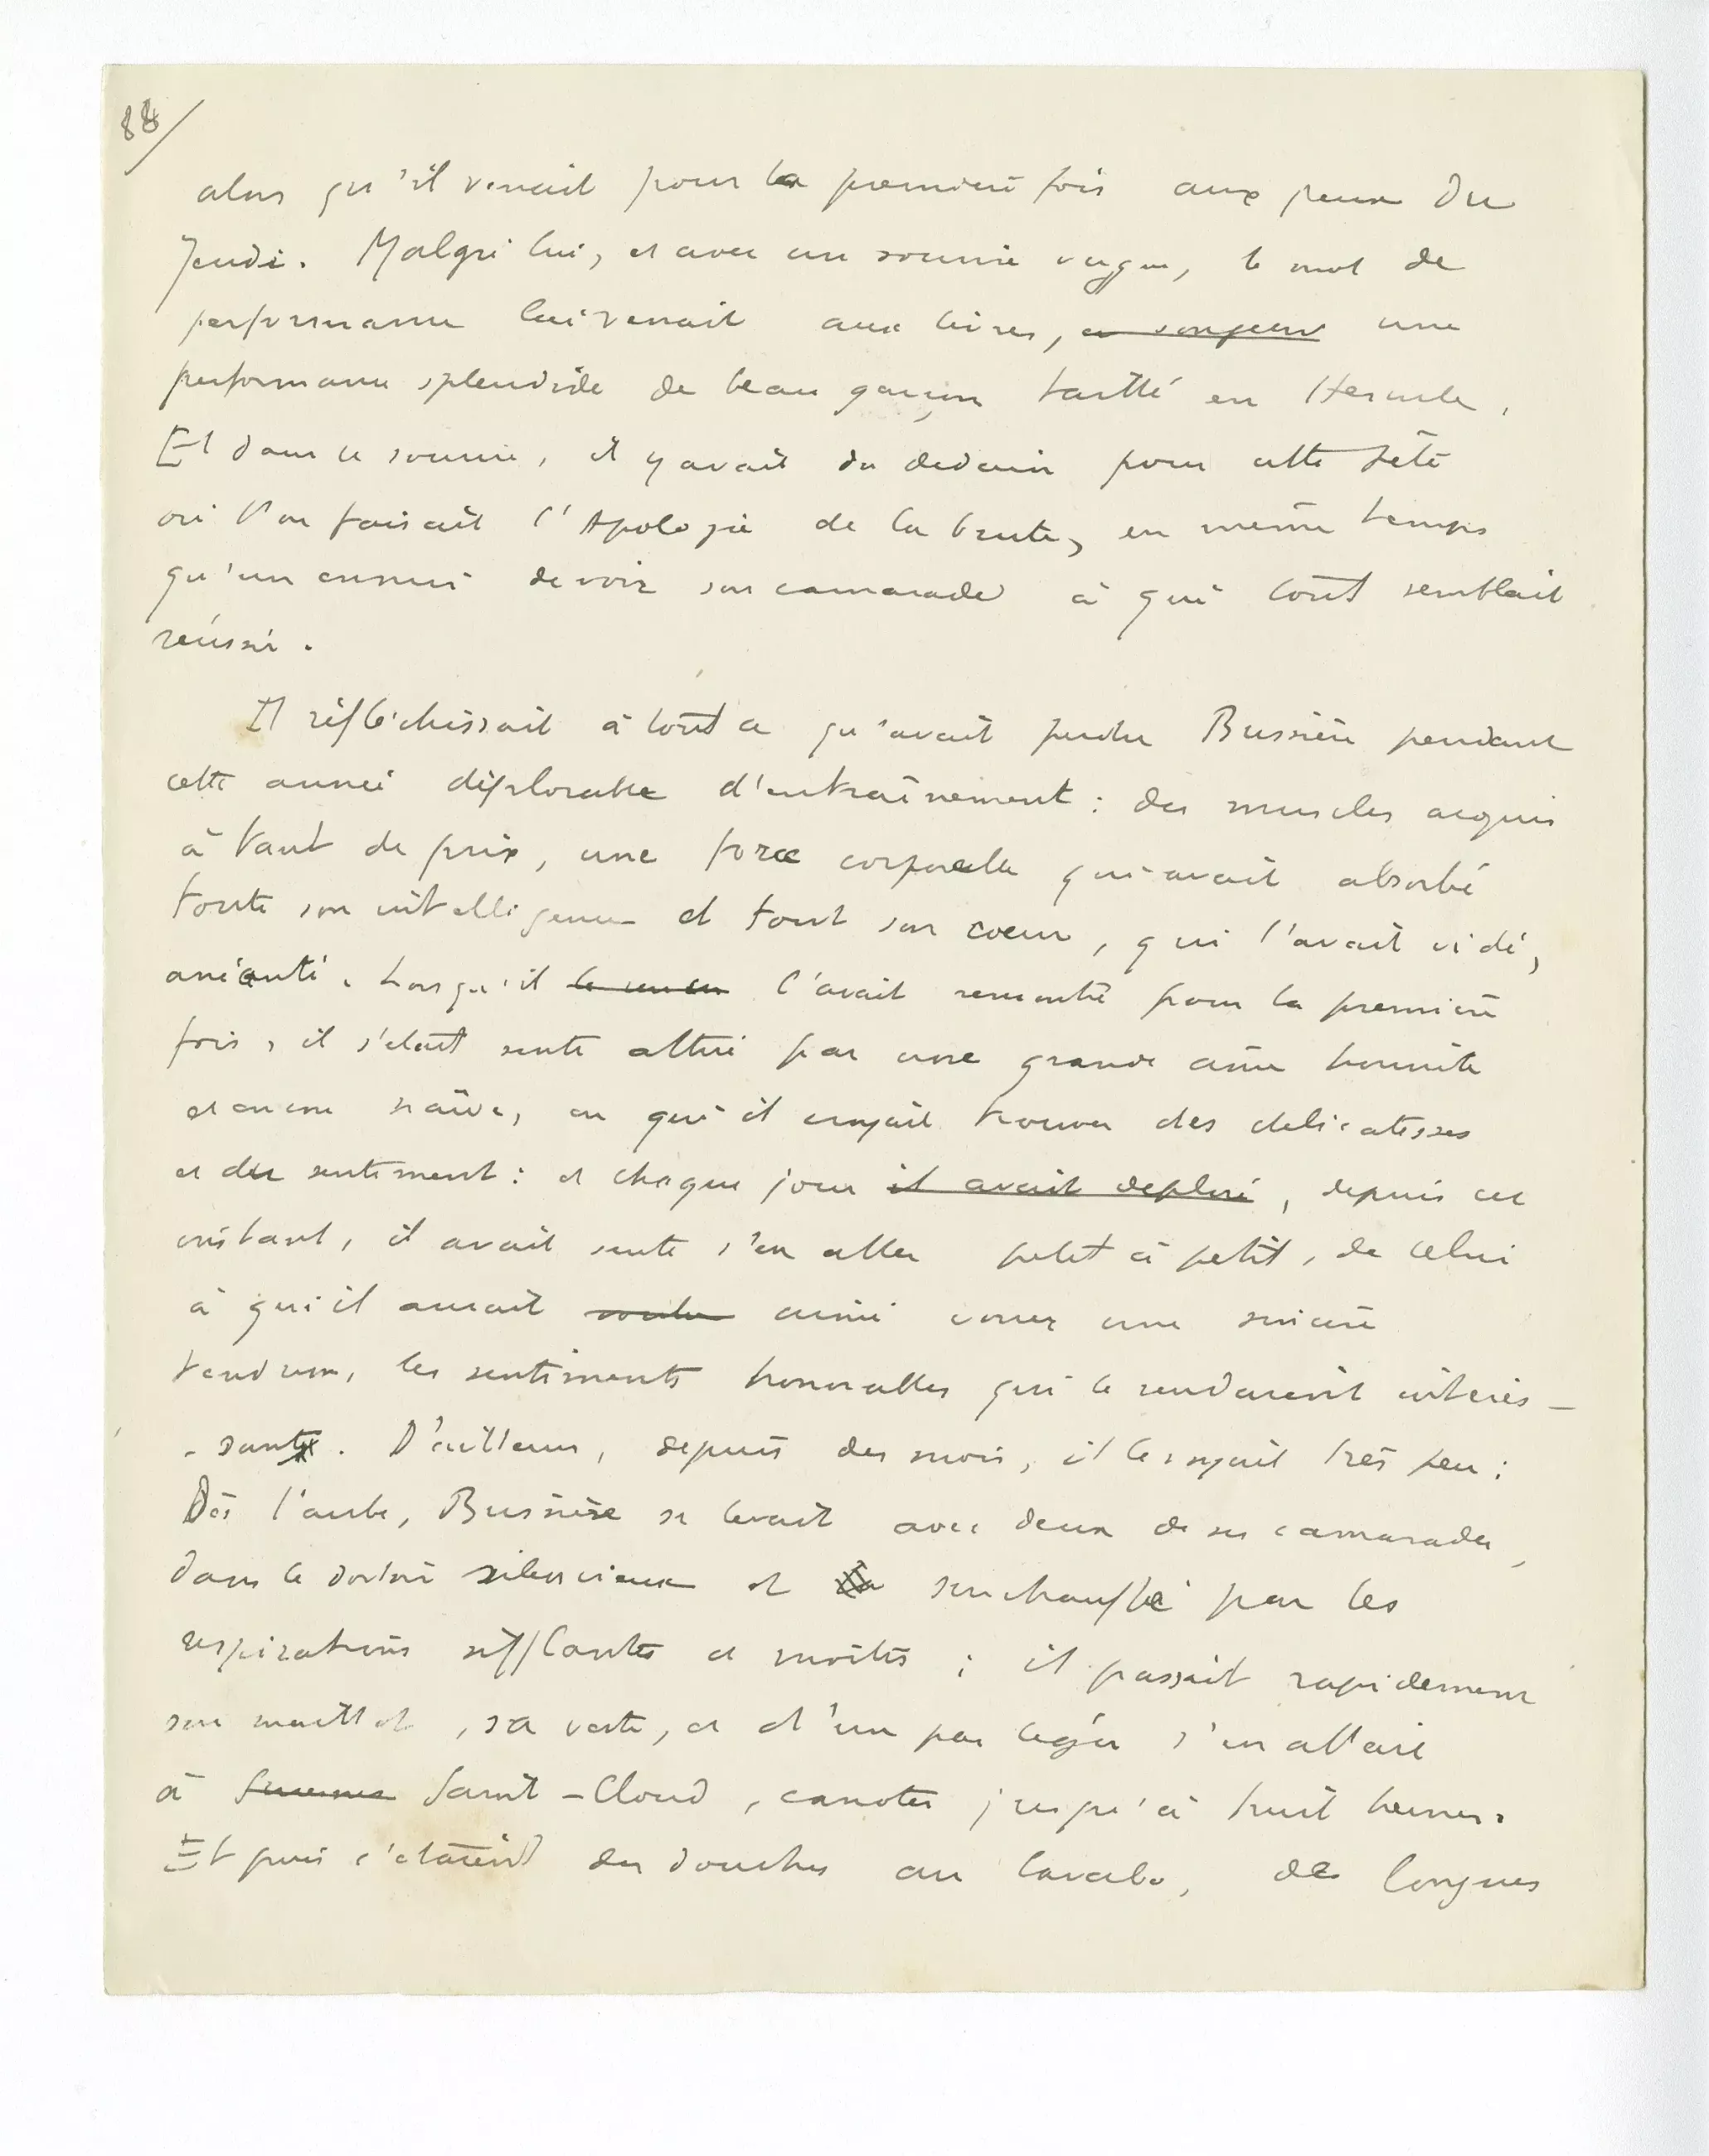 88/
alors qu'il venait pour la première fois aux jeux du
Jeudi. Malgré lui, et avec un sourire vague, le mot de
performance lui venait aux lèvres, une
performance splendide de beau garçon taillé en Hercule.
Et dans ce sourire, il y avait du dédain pour cette fête
où l'on faisait l'Apologie de la brute, en même temps
qu'un ennui de voir son camarade à qui tout semblait
réussir.
Il réfléchissait à tout ce qu'avait perdu Bussière pendant
cette année déplorable d'entraînement : des muscles acquis
à tant de prix, une force corporelle qui avait absorbé
toute son intelligence et tout son coeur, qui l'avait vidé,
anéanti. Lorsqu'il l'avait rencontré pour la première
fois, il s'était senti attiré par une grande âme honnête
et encore naïve, en qui il croyait trouver des délicatesses
et du sentiment : et chaque jour il avait déploré, depuis cet
instant, il avait senti s'en aller petit à petit, de celui
à qui il aurait voulu aimé vouer une sincère
tendresse, les sentiments honorables qui le rendaient intéres-
-sant. D'ailleurs, depuis des mois, il le voyait très peu :
Dès l'aube, Bussière se levait avec deux de ses camarades,
dans le dortoir silencieux et surchauffé par les
respirations sifflantes et moites ; il passait rapidement
son maillot, sa veste, et d'un pas léger s'en allait
à Suresnes Saint-Cloud, canoter jusqu'à huit heures.
Et puis c'étaient des douches au lavabo, de longues